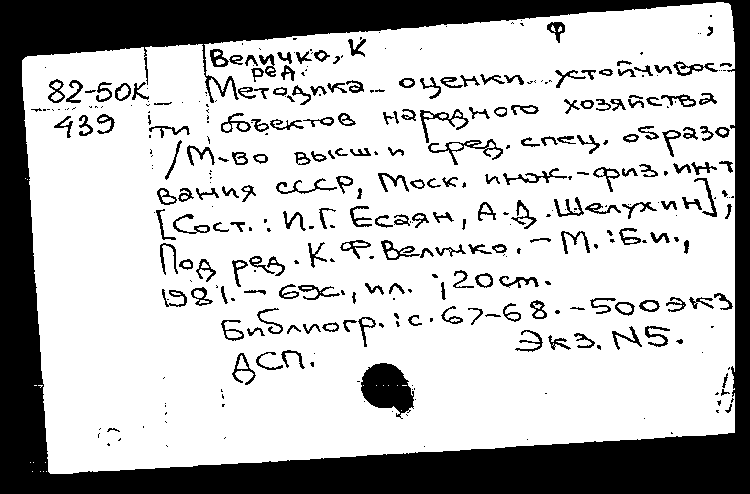 Величко, К ф ;
ред.
82-50К Методика оценки устойчивос-
439 ти объектов народного хозяйства
/М-во высш. и сред. спец. образо
вания СССР, Моск. инж.-физ. ин-т
[Сост.: И.Г. Есаян, А.Д. Шелухин];
Под ред. К. Ф. Величко. - М.: Б.и.,
1981. - 69с., ил. ; 20 ст.
Библиогр.: с. 67-68. - 500 экз
ДСП. Экз. N5.